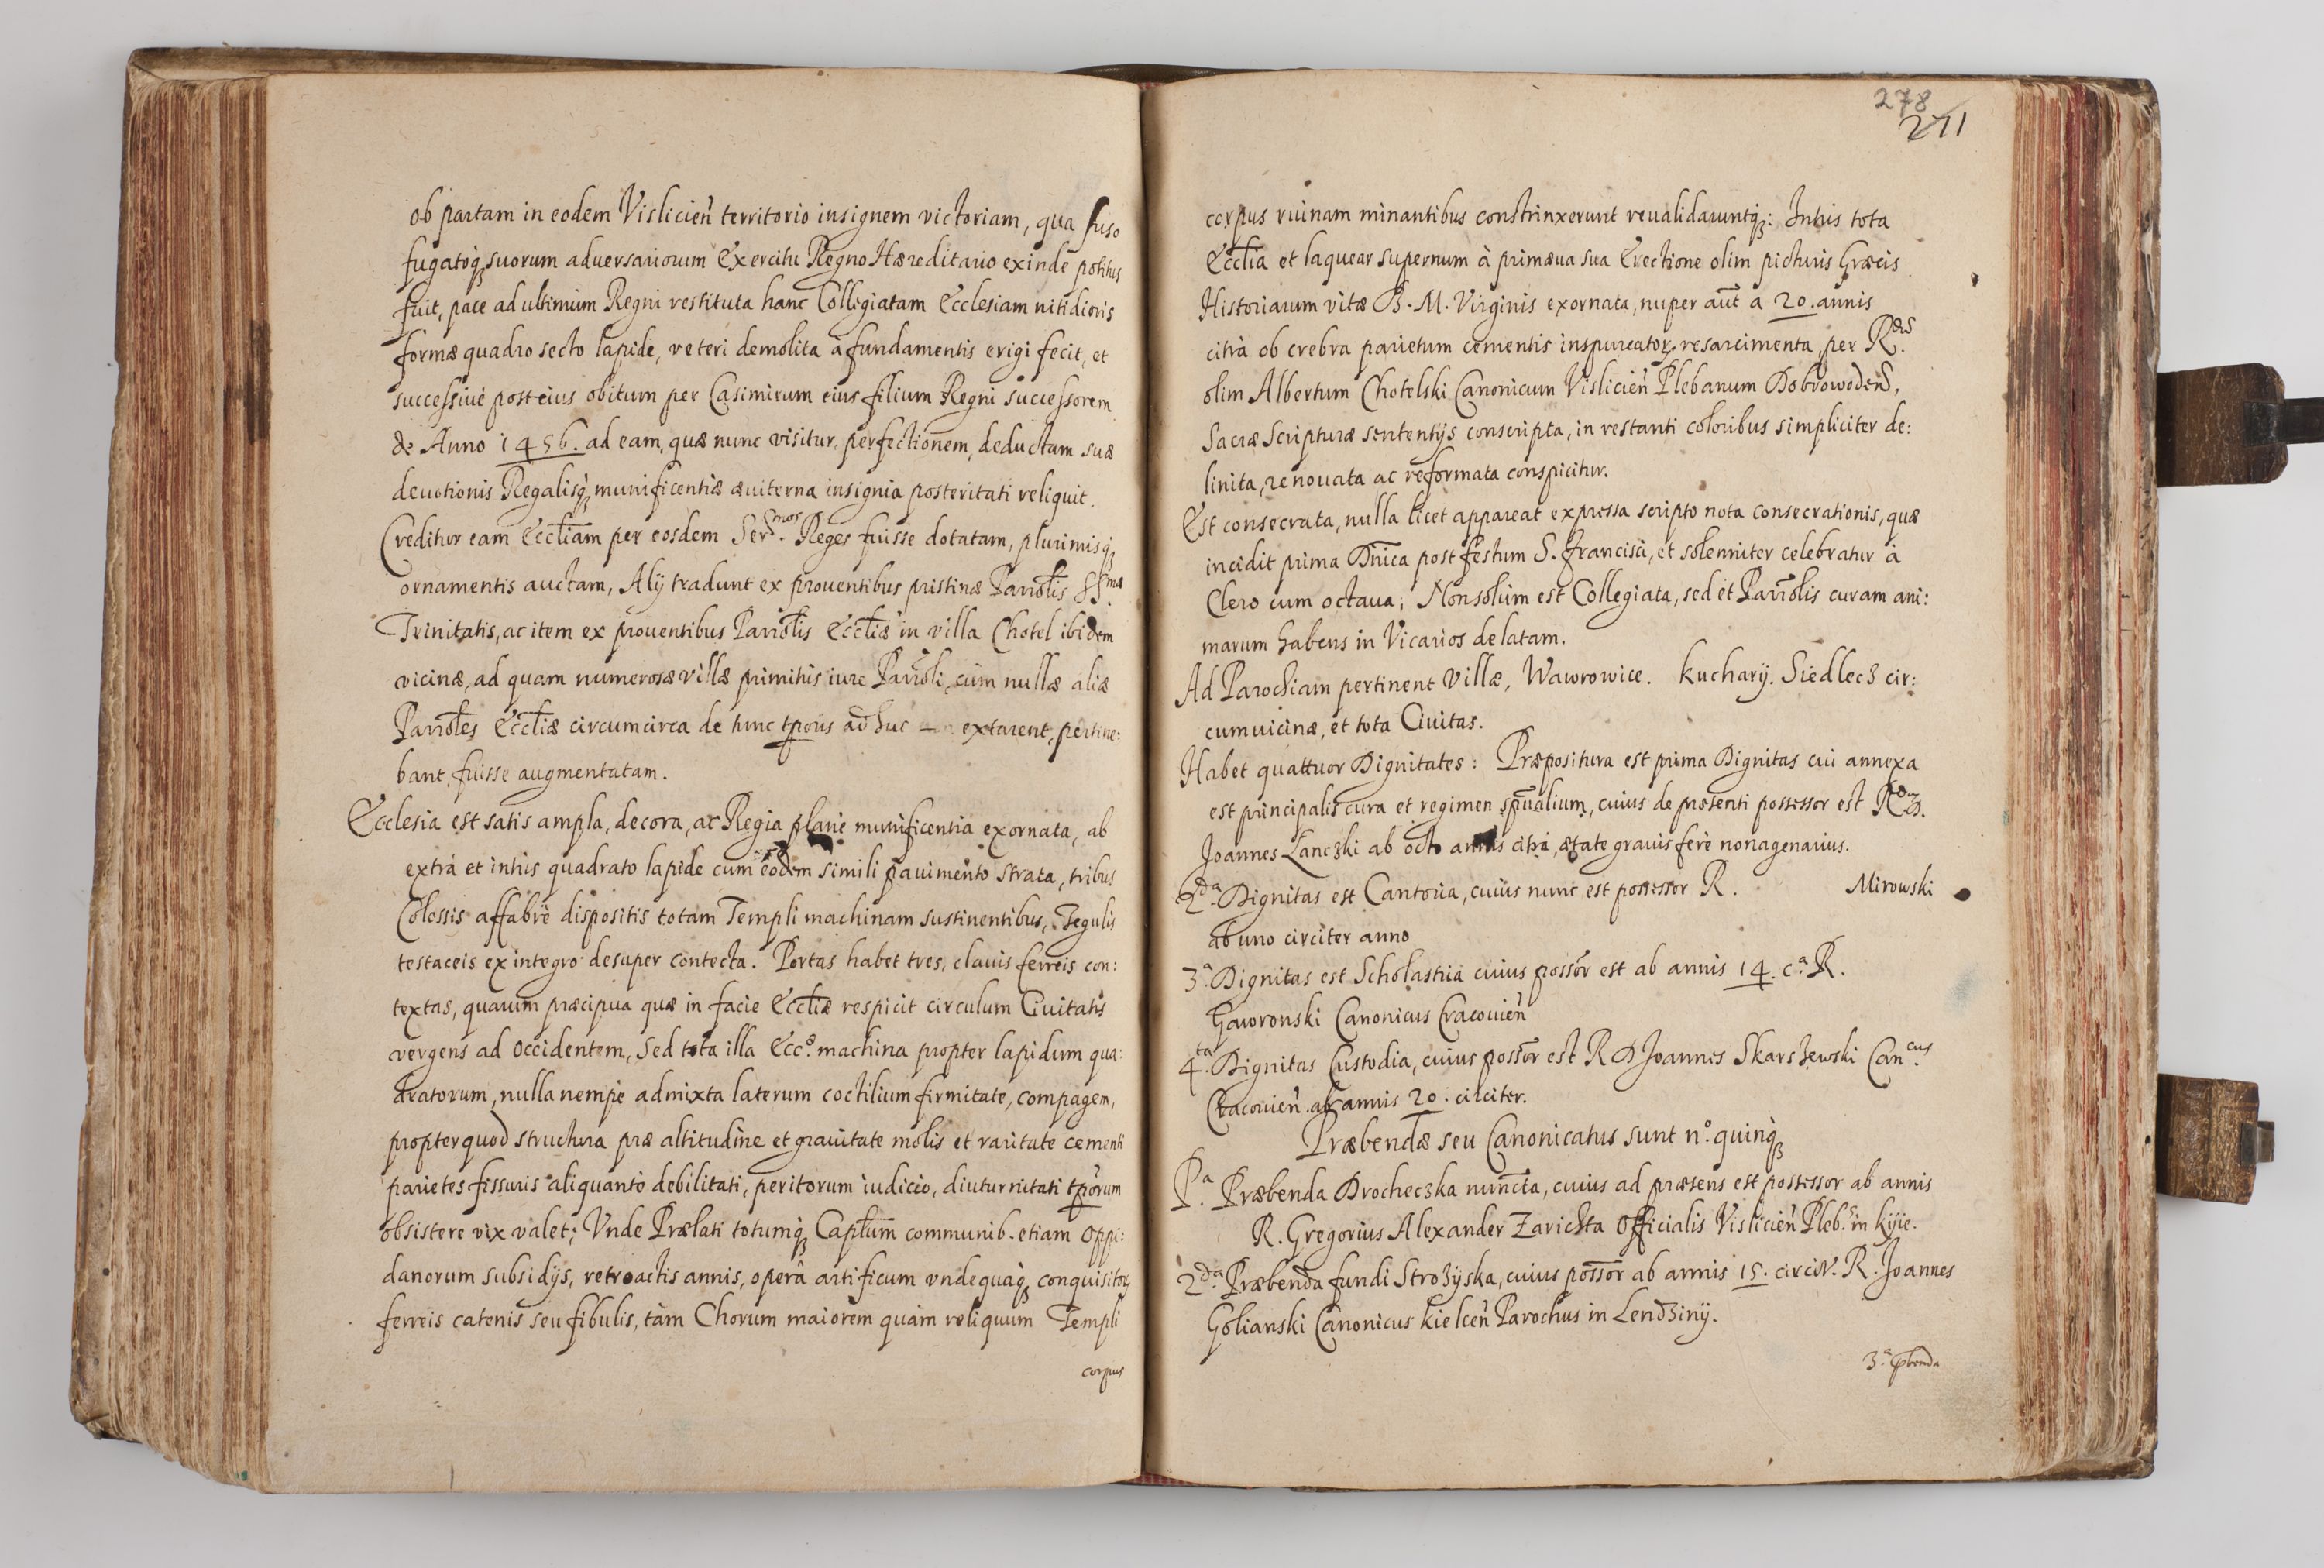 ob partam in eodem Vislicień territorio insignem victoriam, qua fuso
fugatoq̨ suorum aduersariorum Exercitu Regno Hæreditario exinde potitus
fuit, pace ad ultimum Regni restituta hanc Collegiatam Ecclesiam nitidioris
formæ quadro secto lapide, veteri demolita à fundamentis erigi fecit, et
successiuè post eius obitum per Casimirum eius filium Regni successorem
de Anno 1456. ad eam, quæ nunc visitur, perfectionem, deductam suæ
deuotionis Regalisq̨ munificentiæ æuiterna insignia posteritati reliquit.
Creditur eam Eccl̄iam per eosdem Ser.mos Reges fuisse dotatam, plurimisq̨
ornamentis auctam, Alij tradunt ex prouentibus pristinæ Parrol̄is SS.mæ
Trinitatis, ac item ex prouentibus Parrol̄is Eccl̄iæ in villa Chotel ibidem
vicinæ, ad quam numerosæ villæ primitùs iure Parrol̄i, cùm nullæ aliæ
Parrol̄es Eccl̄iæ circumcirca de tunc tp̄oris adhuc extarent, pertine:
bant, fuisse augmentatam.
Ecclesia est satis ampla, decora, ac Regia planè munificentia exornata, ab
extrà et intùs quadrato lapide cum eodem simili pauimento strata, tribus
Colossis affabrè dispositis totam Templi machinam sustinentibus, Tegulis
testaceis ex integro desuper contecta. Portas habet tres, clauis ferreis con:
textas, quarum præcipua quæ in facie Eccl̄iæ respicit circulum Ciuitatis
vergens ad Occidentem, Sed tota illa Ecc.æ machina propter lapidum qua:
dratorum, nulla nempè admixta laterum coctilium firmitate, compagem,
propterquod structura præ altitudine et grauitate molis et raritate cementi
parietes fissuris aliquantò debilitati, peritorum iudicio, diuturnitati tp̄orum
obsistere vix valet; Vnde Prælati totumq̨ Capl̄um communib. etiam Oppi:
danorum subsidijs, retroactis annis, operâ artificum vndequaq̨ conquisitorꝝ
ferreis catenis seu fibulis, tàm Chorum maiorem quàm reliquum Templi
corpus
278
271
corpus ruinam minantibus constrinxerunt reualidaruntq̨: Intùs tota
Eccl̄ia et laquear supernum à primæua sua Erectione olim picturis Græcis
Historiarum vitæ B. M. Virginis exornata, nuper aūt a 20. annis
citrà ob crebra parietum cementis inspurcatorꝝ resarcimenta, per R.ds
olim Albertum Chotelski Canonicum Vislicień Plebanum Dobrowodeń,
Sacræ Scripturæ sententijs conscripta, in restanti coloribus simpliciter de:
linita, renouata ac reformata conspicitur.
Est consecrata, nulla licet appareat expressa scripto nota consecrationis, quæ
incidit prima Dn̄ica post festum S. Francisci, et solenniter celebratur à
Clero cum octaua; Non solùm est Collegiata, sed et Parrol̄is curam ani:
marum habens in Vicarios delatam.
Ad Parochiam pertinent Villæ, Wawrowice. Kucharÿ. Siedlecz cir:
cumuicinæ, et tota Ciuitas.
Habet quattuor Dignitates: Præpositura est prima Dignitas cui annexa
est principalis cura et regimen sp̄ualium, cuius de præsenti possessor est R.
Joannes Lanczki ab octo annis citrà, ætate grauis ferè nonagenarius.
2.da Dignitas est Cantoria, cuius nunc est possessor R. Mirowski
ab uno circiter anno
3.a Dignitas est Scholastria cuius possor̄ est ab annis 14. c.a R.
Gaworonski Canonicus Cracouień
4.ta Dignitas Custodia, cuius possor̄ est R D Joannes Skarszewski Can.cus
Cracouień. ab annis 20. circiter.
Præbendæ seu Canonicatus sunt n.o quinq̨
P.a Præbenda Drocheczka nunc̄ta, cuius ad præsens est possessor ab annis
R. Gregorius Alexander Zarichta Officialis Vislicień Pleb.s in Kijie.
2.da Præbenda fundi Strozÿska, cuius possor̄ ab annis 15. circit. R. Joannes
Golianski Canonicus Kielceń Parochus in Lendzinÿ.
3.a Præbenda